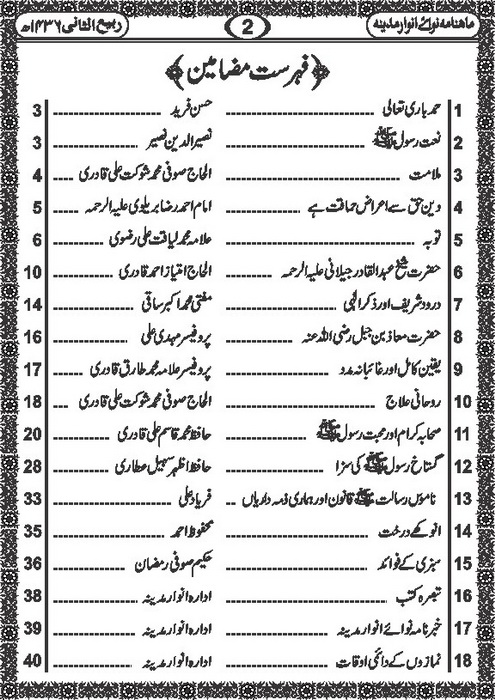 ماہنامہ نوائے انوار مدینہ 2 ربیع الثانی ۱۴۳۶ھ
﴿فہرست مضامین﴾
1 حمد باری تعالی حسن فرید 3
2 نعت رسول ﷺ نصیر الدین نصیر 3
3 ملامت الحاج صوفی محمد شوکت علی قادری 4
4 دین حق سے اعراض حماقت ہے امام احمد رضا بریلوی علیہ الرحمہ 5
5 توبہ علامہ محمد لیاقت علی رضوی 6
6 حضرت شیخ عبدالقادر جیلانی علیہ الرحمہ الحاج امتیاز احمد قادری 10
7 درود شریف اور ذکر الہی مفتی محمد اکبر ساقی 14
8 حضرت معاذ بن جبل رضی اللہ عنہ پروفیسر مہدی علی 16
9 یقین کامل اور غائبانہ مدد پروفیسر علامہ محمد طارق قادری 17
10 روحانی علاج الحاج صوفی محمد شوکت علی قادری 18
11 صحابہ کرام اور محبت رسول ﷺ حافظ محمد قاسم علی قادری 20
12 گستاخ رسول ﷺ کی سزا حافظ اظہر سہیل عطاری 28
13 ناموس رسالت ﷺ قانون اور ہماری ذمہ داریاں فریاد علی 33
14 انوکھے درخت محفوظ احمد 35
15 سبزی کے فوائد حکیم صوفی رمضان 36
16 تبصرہ کتب ادارہ انوار مدینہ 38
17 خبرنامہ نوائے انوار مدینہ ادارہ انوار مدینہ 39
18 نمازوں کے دائمی اوقات ادارہ انوار مدینہ 40